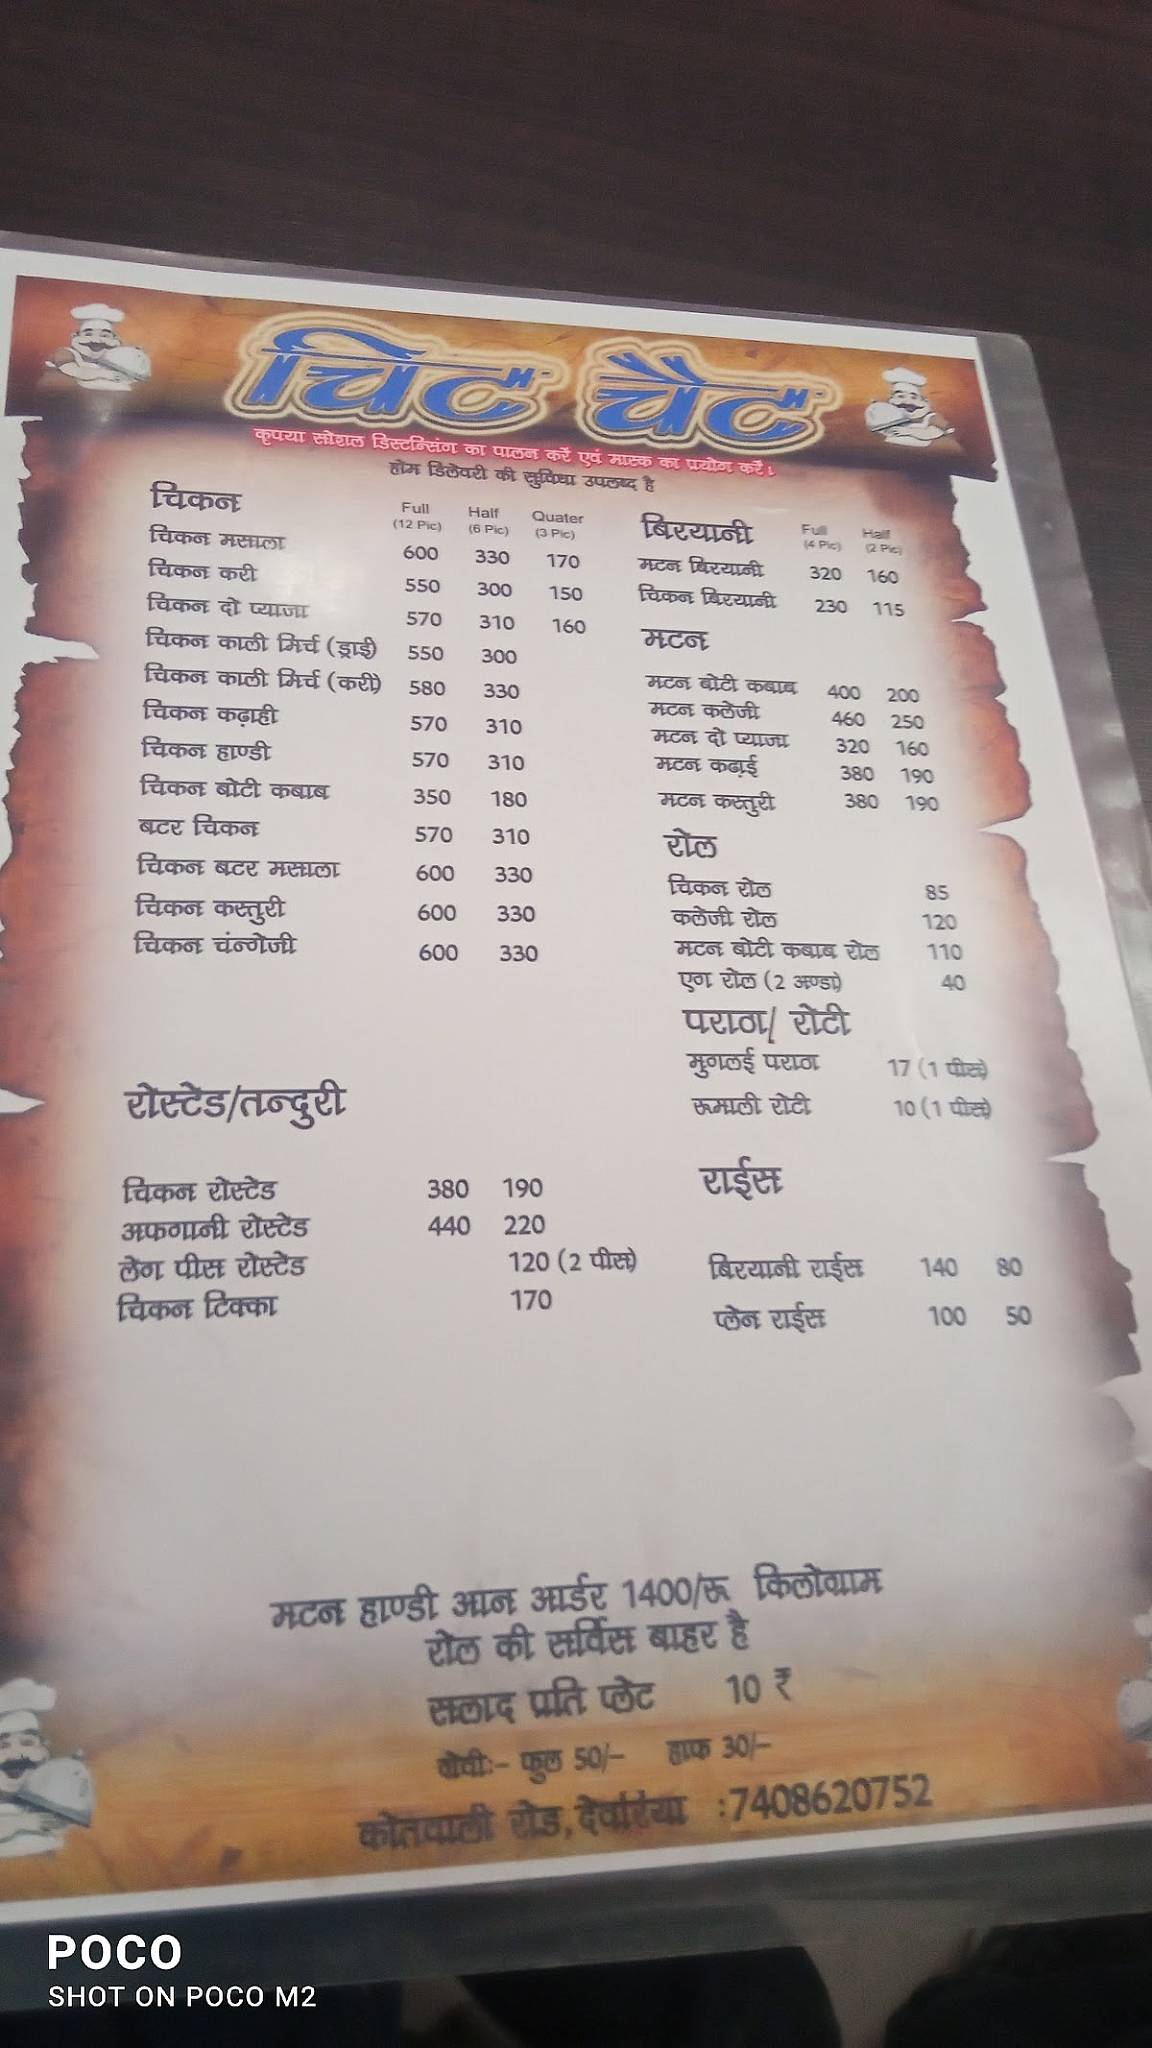 चिट चैट
कृपया सोशल डिस्टन्सिंग का पालन करें एवं मास्क का प्रयोग करें।
होम डिलेवरी की सुविधा उपलब्द है
चिकन Full (12 Pic) Half (6 Pic) Quater (3 Pic)
चिकन मसाला 600 330 170
चिकन करी 550 300 150
चिकन दो प्याजा 570 310 160
चिकन काली मिर्च (ड्राई) 550 300
चिकन काली मिर्च (करी) 580 330
चिकन कढ़ाही 570 310
चिकन हाण्डी 570 310
चिकन बोटी कबाब 350 180
बटर चिकन 570 310
चिकन बटर मसाला 600 330
चिकन कस्तुरी 600 330
चिकन चंन्गेजी 600 330
रोस्टेड/तन्दुरी
चिकन रोस्टेड 380 190
अफगानी रोस्टेड 440 220
लेग पीस रोस्टेड 120 (2 पीस)
चिकन टिक्का 170
बिरयानी Full (4 Pic) Half (2 Pic)
मटन बिरयानी 320 160
चिकन बिरयानी 230 115
मटन
मटन बोटी कबाब 400 200
मटन कलेजी 460 250
मटन दो प्याजा 320 160
मटन कढाई 380 190
मटन कस्तुरी 380 190
रोल
चिकन रोल 85
कलेजी रोल 120
मटन बोटी कबाब रोल 110
एग रोल (2 अण्डा) 40
पराठा/ रोटी
मुगलई पराठा 17 (1 पीस)
रूमाली रोटी 10 (1 पीस)
राईस
बिरयानी राईस 140 80
प्लेन राईस 100 50
मटन हाण्डी आन आर्डर 1400/रू किलोग्राम
रोल की सर्विस बाहर है
सलाद प्रति प्लेट 10 ₹
फुल 50/- हाफ 30/-
कोतवाली रोड, देवरिया :7408620752
POCO
SHOT ON POCO M2